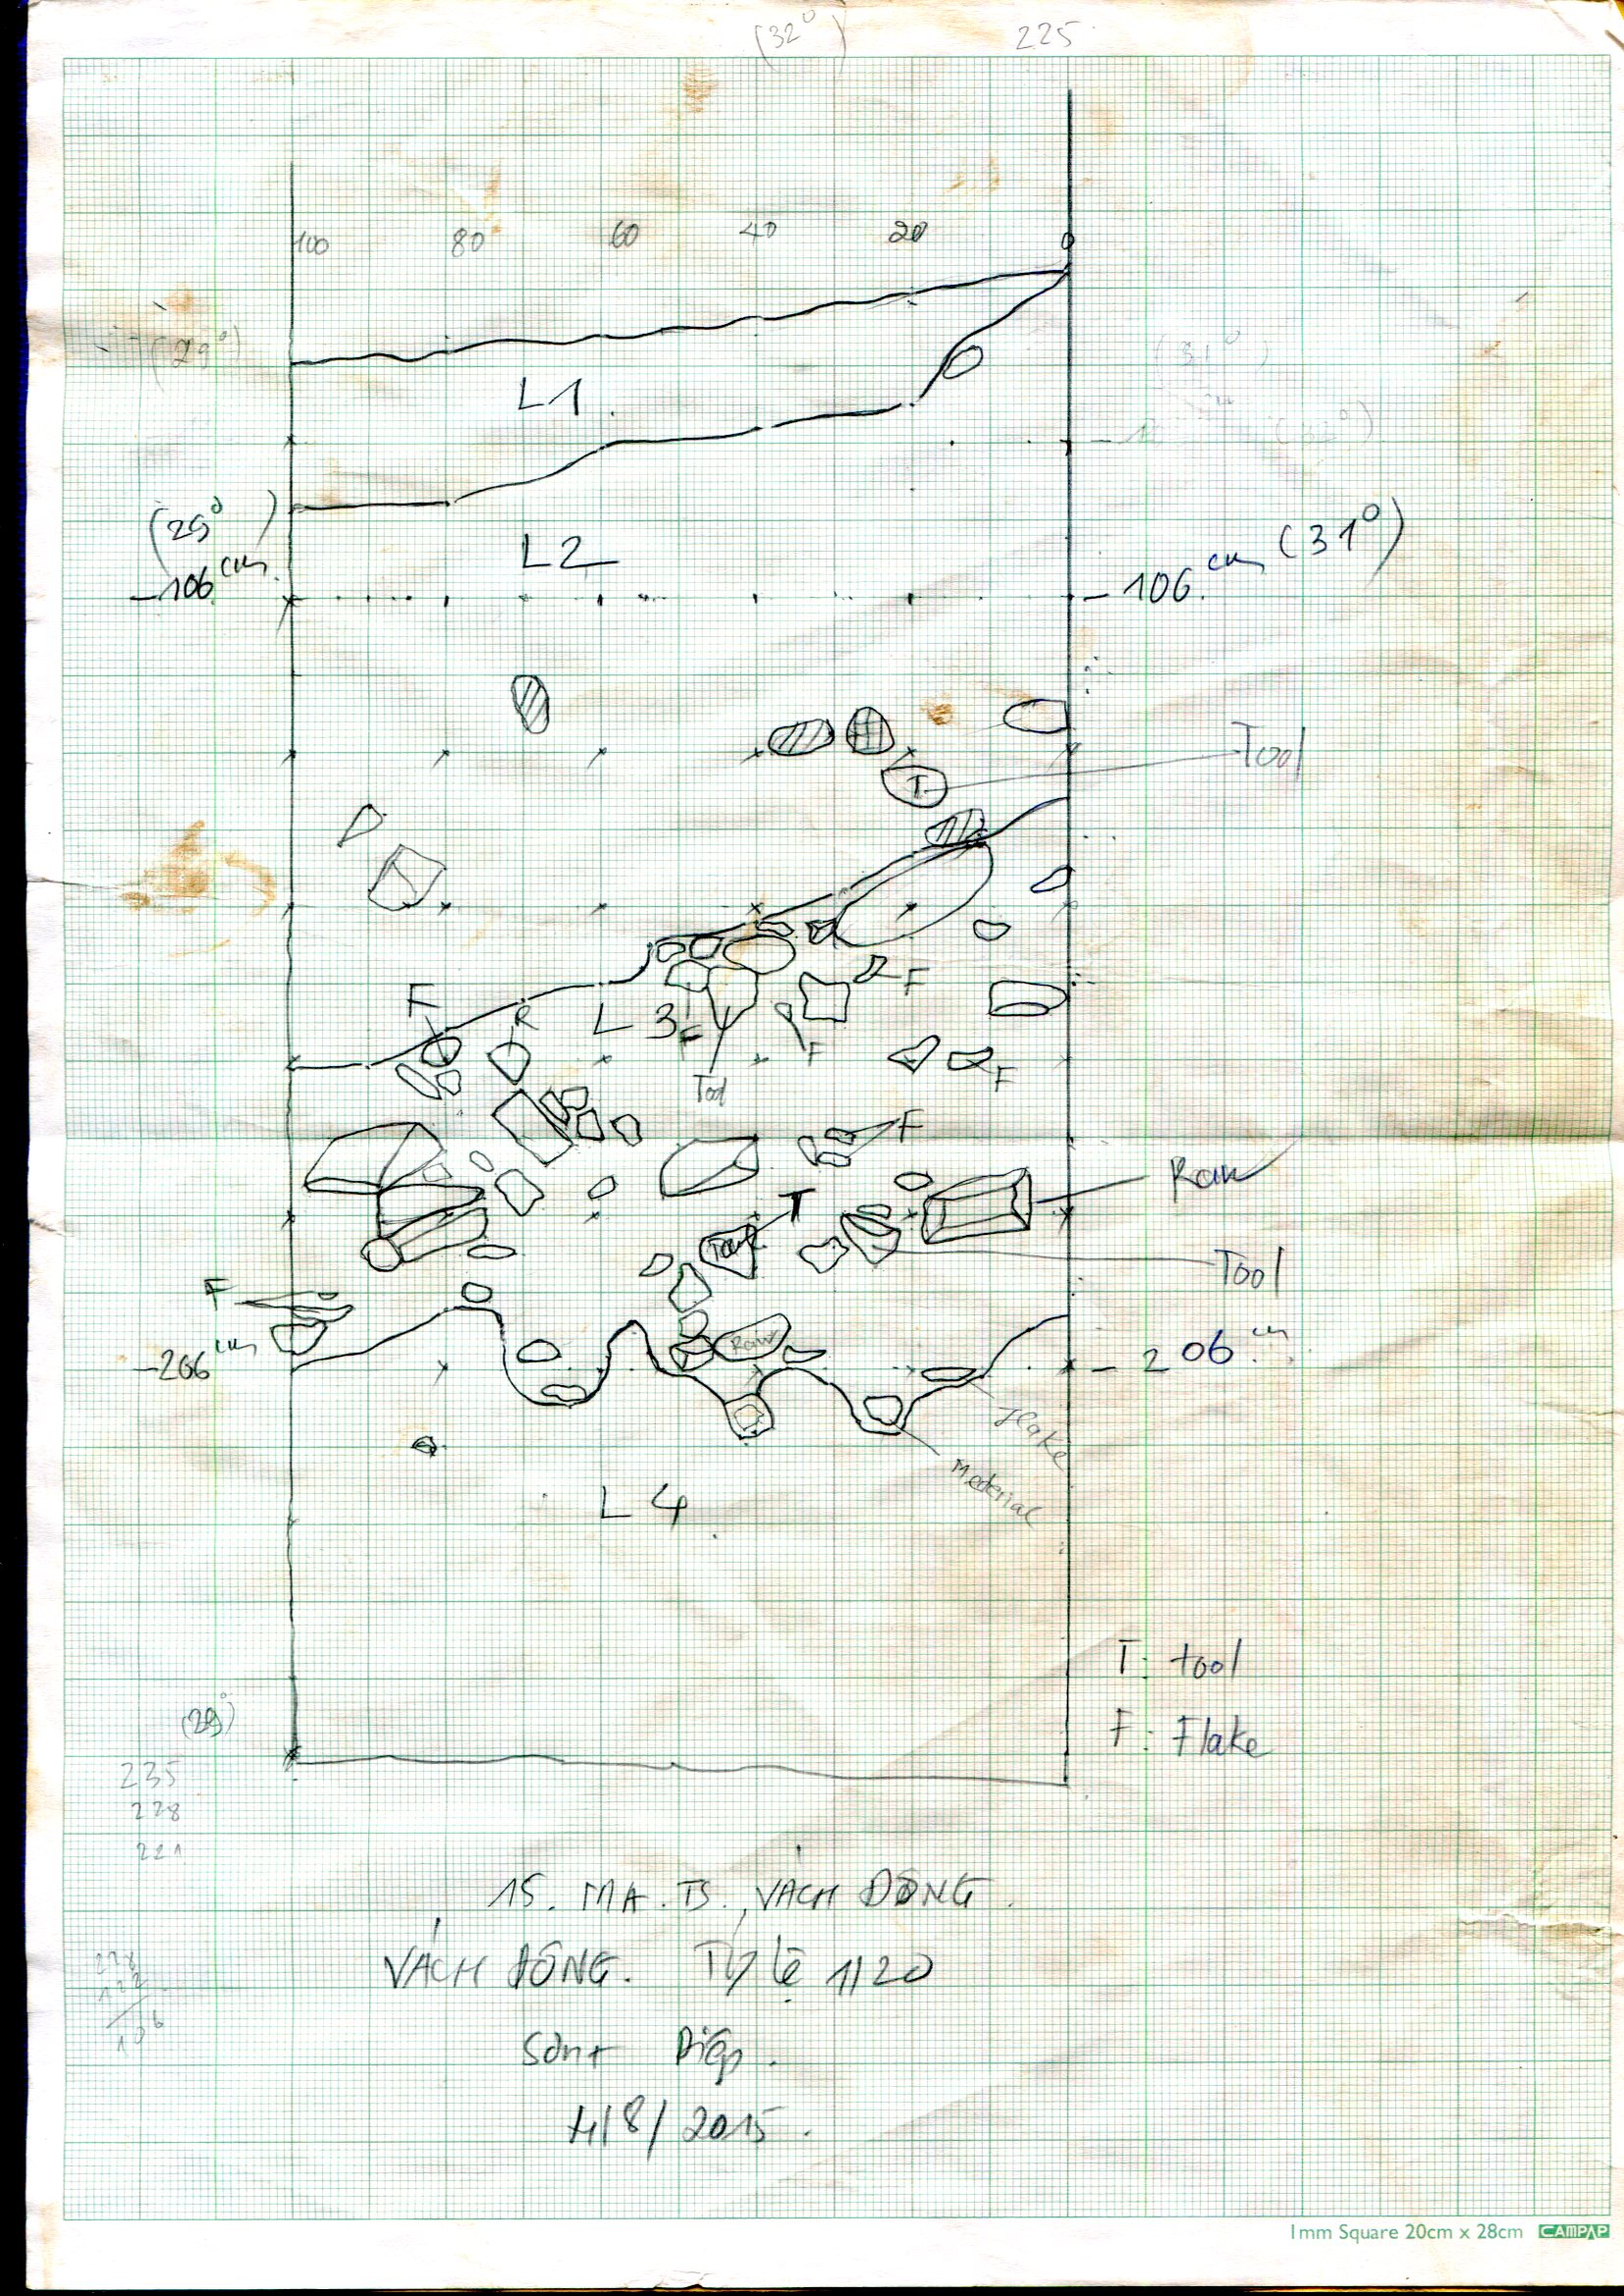 (32°) 225
100 80 60 40 20 0
(29°) (31°)
L1
(29°)
-106 cm
L2
-106 cm (31°)
Tool
T
F
R
L3
F
F
F
F
Tool
F
Raw
T
Tool
F
-206 cm
Raw
-206 cm
Flake
Material
L4
T: tool
F: Flake
(29°)
235
228
221
15. MA. TS. VÁCH ĐÔNG.
VÁCH ĐÔNG. Tỷ lệ 1/20
Sơn + Điệp.
4/8/2015.
228
122
106
1mm Square 20cm x 28cm CAMPAP